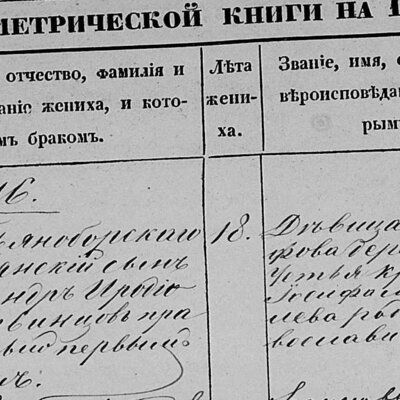 МЕТРИЧЕСКОЙ КНИГИ НА 1
отчество, фамилія и
аніе жениха, и кото-
мъ бракомъ.
Лѣта
жени-
ха.
Званіе, имя,
вѣроисповѣда
рымъ
16.
яноборскаго
янскій сынъ
ндръ Иродіо
винцовъ пра
вый первый
мъ.
18.
Дѣвица
фова дер
Устья кр
Іосифа
лева
вослави